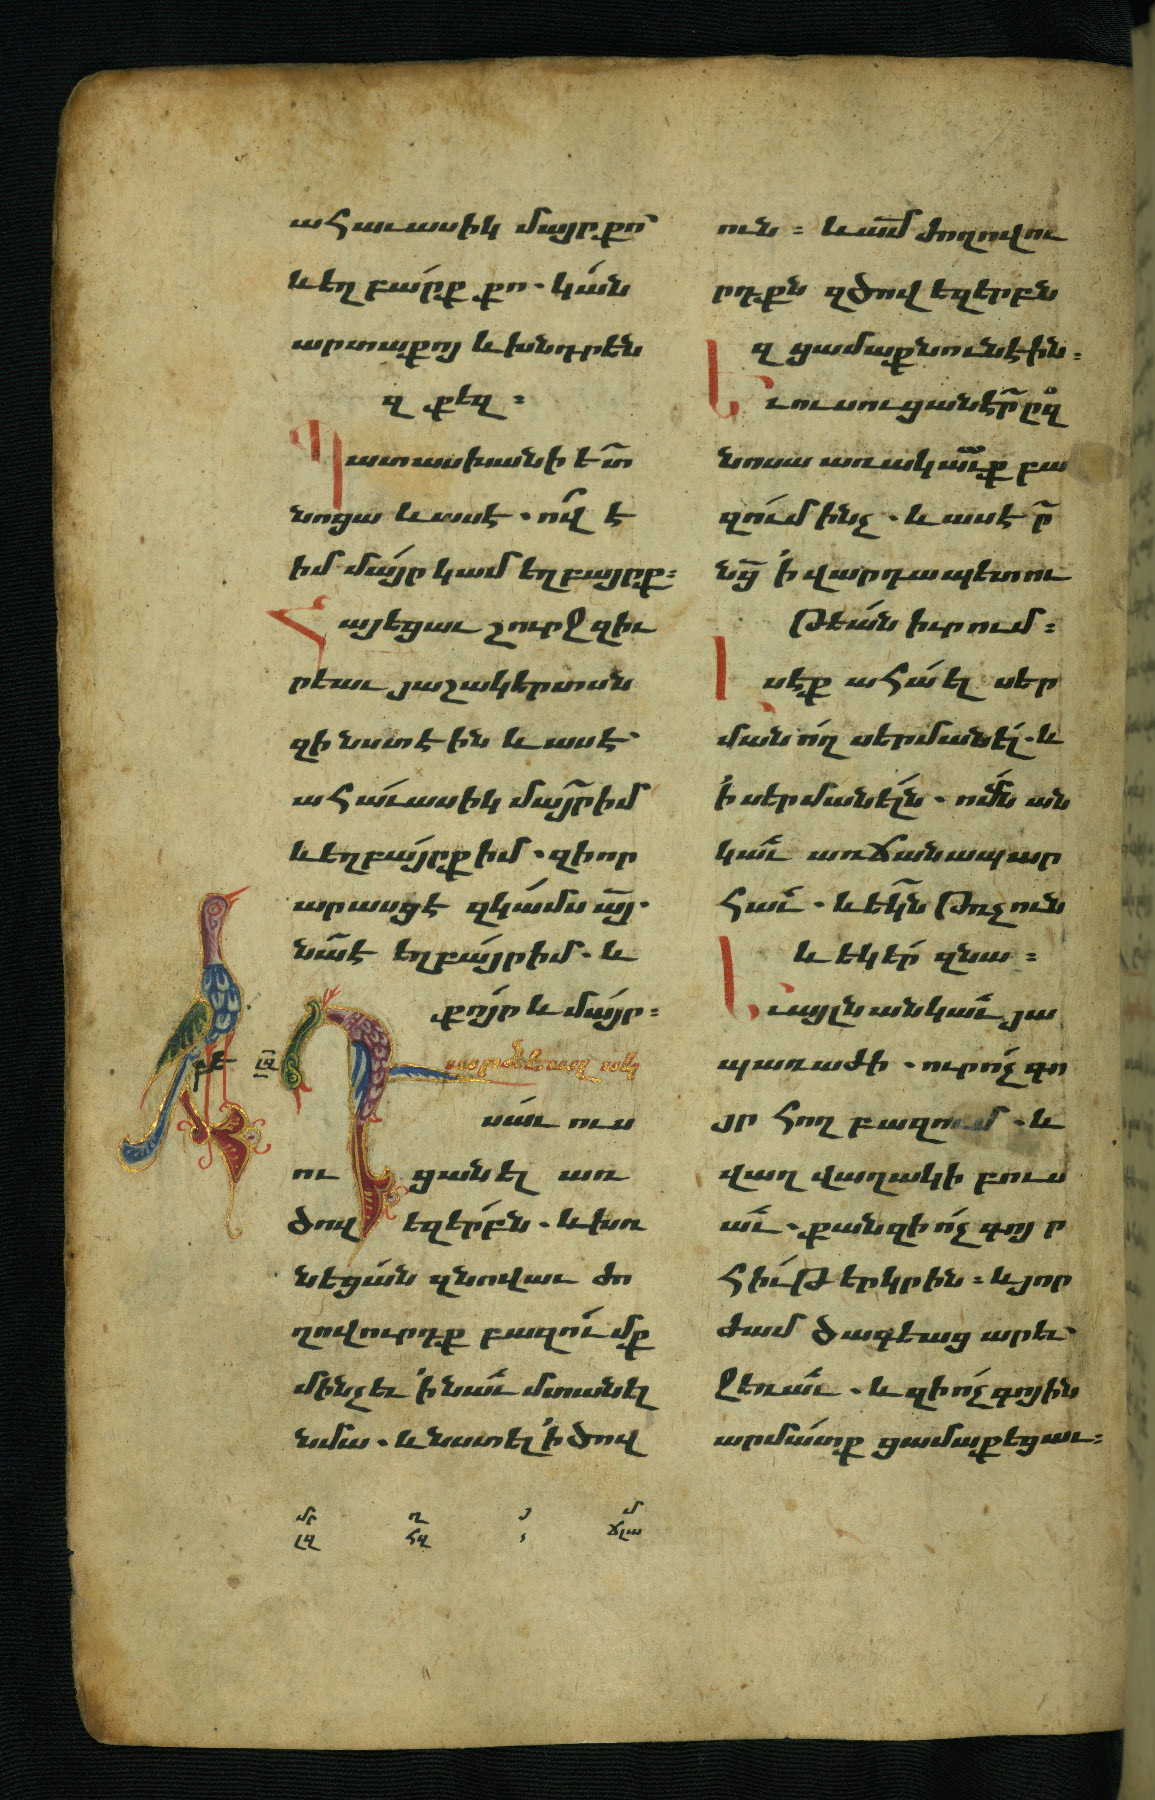 ահաւասիկ մայր քո՞
և եղբա́րք քո. կա́ն
արտաքոյ և խնդրեն
զքեզ :
Պատասխանի ետ
նոցա և ասէ. ո՞վ է
իմ մա́յր կամ եղբայրք :
Հայեցաւ շուրջ զիւ
րեաւ յաշակերտսն
զի նստէին և ասէ՝
ահա́ւասիկ մայր իմ
և եղբա́յրք իմ. զի որ
արասցէ զկա́մս ա̅յ.
նա̅ է եղբա́յր իմ. և
քո́յր և մա́յր :
բէ լզ Դարձեալ սկ
սաւ ուս
ուցանել առ
ծով եզերբն. և խռ
նեցա́ն զնովաւ ժո
ղովուրդք բազո́ւմք
մինչև ՛ի նաւ մտանել
նմա. և նստել ՛ի ծով
ուն : և ա̅մ ժողովու
րդքն զծովեզերբն
զցամաքն ունէին :
Եւ ուսուցանէր ը̅զ
նոսա առակա̅ւք բա
զո́ւմ ինչ. և ասէ ը̅
նց̅ ՛ի վարդապետու
թեա́ն իւրում :
Լսէք ահա́ ել սեր
մանո́ղ սերմանե́լ. և
՛ի սերմանե́լն. ո́մն ան
կա̅ւ առ ճանապար
հաւ. և եկն թռչո́ւն
և եկե́ր զնա :
Եւ այլն անկաւ յա
պառաժի. ուր ո́չ գո
յր հող բազում. և
վաղվաղակի բուս
աւ. քանզի ո́չ գոյր
հի́ւթ երկրին : և յոր
ժամ ծագեաց արև՝
ջեռաւ. և զի ո́չ գոյին
արմա́տք ցամաքեցաւ :
մր ղ յ մ
լզ հզ ճլա